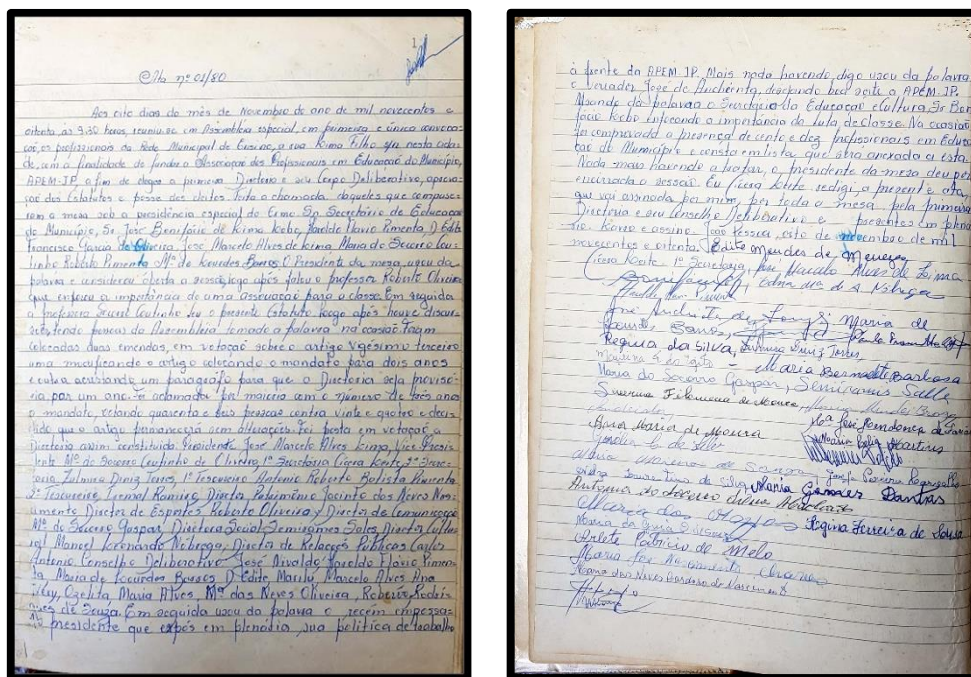 1
Ata nº 01/80
Aos oito dias do mês de Novembro do ano de mil novecentos e
oitenta, às 9:30 horas, reuniu-se em Assembleia especial, em primeira e única convoca-
ção, os profissionais da Rede Municipal de Ensino, a rua Lima Filho s/n nesta cida-
de, com a finalidade de fundar a Associação dos Profissionais em Educação do Município,
APEM-JP, a fim de eleger a primeira Diretoria e seu Corpo Deliberativo, aprova-
ção dos Estatutos e posse dos eleitos. Feita a chamada daqueles que compuse-
ram a mesa sob a presidência especial do Exmo Sr Secretário de Educação
do Município, Sr. José Bonifácio de Lima Lobo, Haroldo Flávio Pimenta, D. Edite
Francisco Garcia de Oliveira, José Marcelo Alves de Lima Maria do Socorro Cou-
tinho Roberto Pimenta Mª de Lourdes Barros. O Presidente da mesa, usou da
palavra e considerou aberta a sessão, logo após falou o professor Roberto Oliveira
que enfocou a importância de uma associação para a classe. Em seguida
a professora Socorro Coutinho leu o presente Estatuto. Logo após houve discus-
são tendo pessoas da Assembleia tomado a palavra na ocasião. Foram
colocadas duas emendas, em votação sobre o artigo vigésimo terceiro
uma modificando o artigo colocando o mandato para dois anos
e outra acrescentando um parágrafo para que a Diretoria seja provisó-
ria, por um ano. é aclamada por maioria com o número de três anos
o mandato, votando quarenta e seis pessoas contra vinte e quatro e deci-
dido que o artigo permanecerá sem alterações. Foi posta em votação a
Diretoria assim constituída: Presidente, José Marcelo Alves Lima, Vice-Presi-
dente Mª do Socorro Coutinho de Oliveira, 1ª Secretária Cícera Leite, 2ª Secre-
tária Zulmira Diniz Torres, 1º Tesoureiro Antonio Roberto Batista Pimenta
2º Tesoureiro, Ramiro, Diretor Patrimônio Jacinto das Neves Nas-
cimento Diretor de Esportes Roberto Oliveira, Diretor de Comunicação
Mª do Socorro Gaspar, Diretora Social Semirames Sales, Diretor Cultu-
ral Manoel Fernando Nóbrega, Diretor de Relações Públicas Carlos
Antonio. Conselho Deliberativo: José Nivaldo, Haroldo Flávio Pimen-
ta Maria de Lourdes Barros D. Edite Marilu, Marcelo Alves Ana
Ozelita, Maria Alves, Mª das Neves Oliveira, Roberto Rodri-
gues de Souza. Em seguida usou da palavra o recém empossa-
do presidente que expôs em plenária, sua política de trabalho
à frente da APEM-JP. Mais nada havendo, digo usou da palavra
o vereador José de Anchieta, desejando boa sorte a APEM-JP.
Usando da palavra o Secretário da Educação e Cultura, Sr Boni-
fácio Lobo enfocando a importância da luta de classe. Na ocasião
foi comprovada a presença de cento e dez profissionais em Educa-
ção do Município e consta em lista que será anexada a esta.
Nada mais havendo a tratar, o presidente da mesa deu por
encerrada a sessão. Eu Cícera Leite redigi a presente ata,
que vai assinada por mim, por toda a mesa, pela primeira
Diretoria e seu Conselho Deliberativo e presentes em plená-
rio. Lavro e assino. João Pessoa, oito de novembro de mil
novecentos e oitenta. Edite Mendes de Menezes
Cícera Leite 1ª Secretária, José Marcelo Alves de Lima
Edna Mª de A Nóbrega
José Anchieta de Maria de
Lourdes Barros
Regina da Silva, Zulmira Diniz Torres,
Maria Bernadete Barbosa
Maria do Socorro Gaspar, Semirames Salles
Filomena de Moura
Ana Maria de Moura Mª José Mendonça de
Martins
Josefa
da Silva, Vania Gomes Dantas
Antonia do Socorro
Maria das Regina Ferreira de Sousa
Maria da Guia
Arlete Patricio de Melo
Maria José
Maria das Neves Cardoso do Nascimento